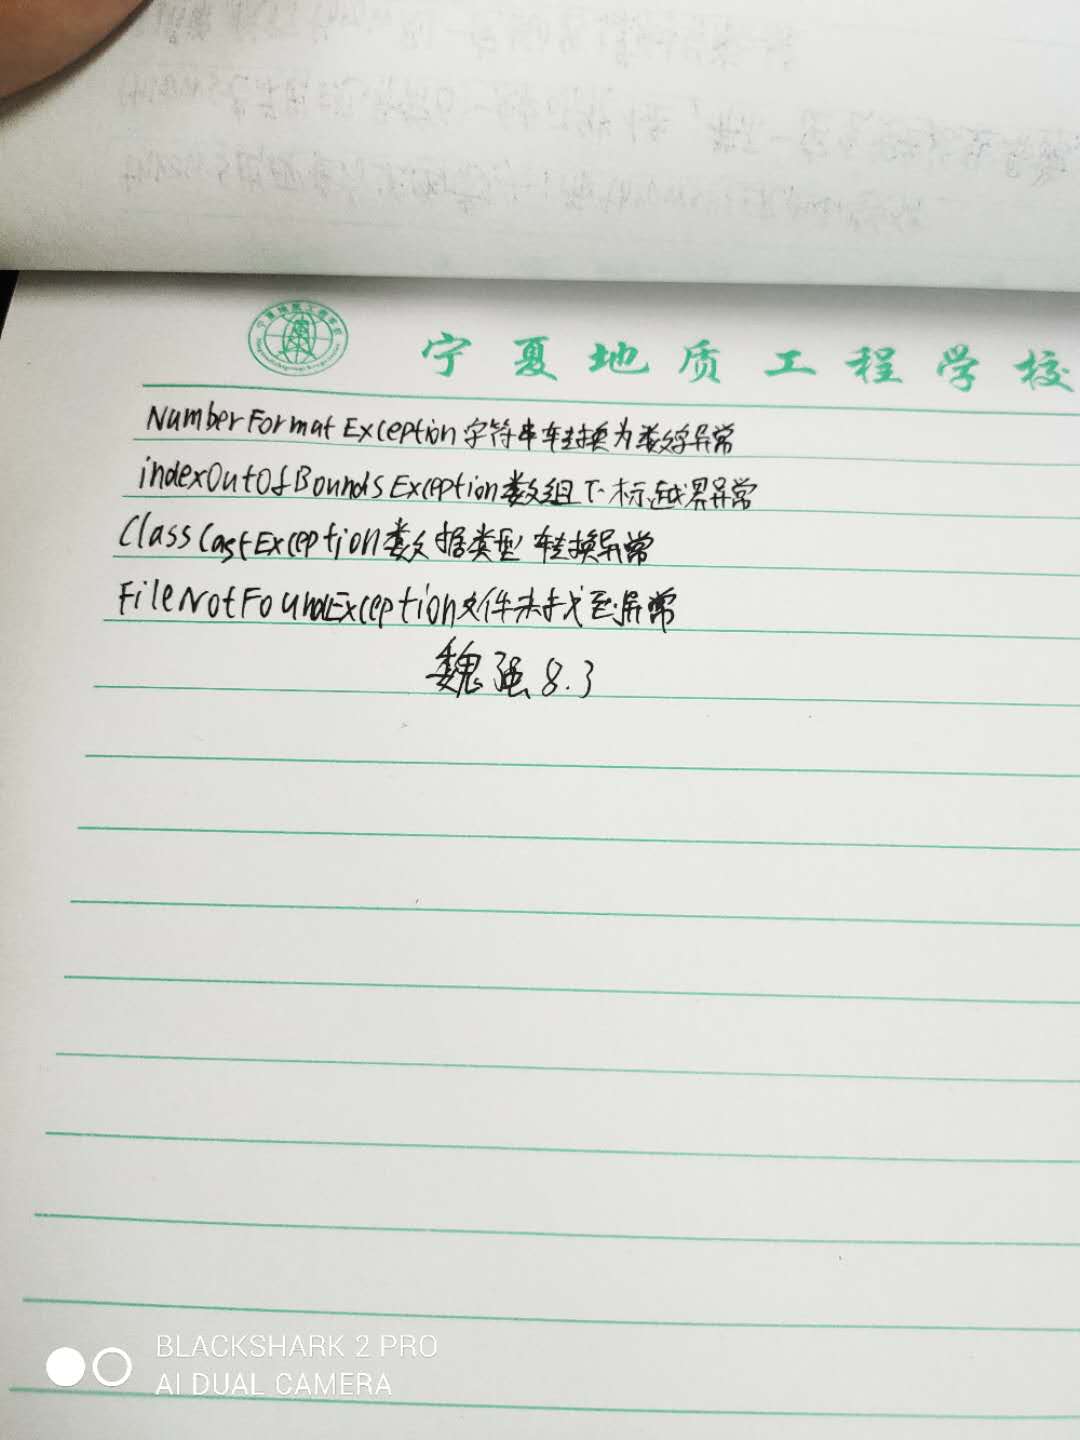 宁夏地质工程学校
NumberFormatException字符串转换为数字异常
indexOutOfBoundsException数组下标越界异常
ClassCastException数据类型转换异常
FileNotFoundException文件未找到异常
魏强8.3
BLACKSHARK 2 PRO
AI DUAL CAMERA